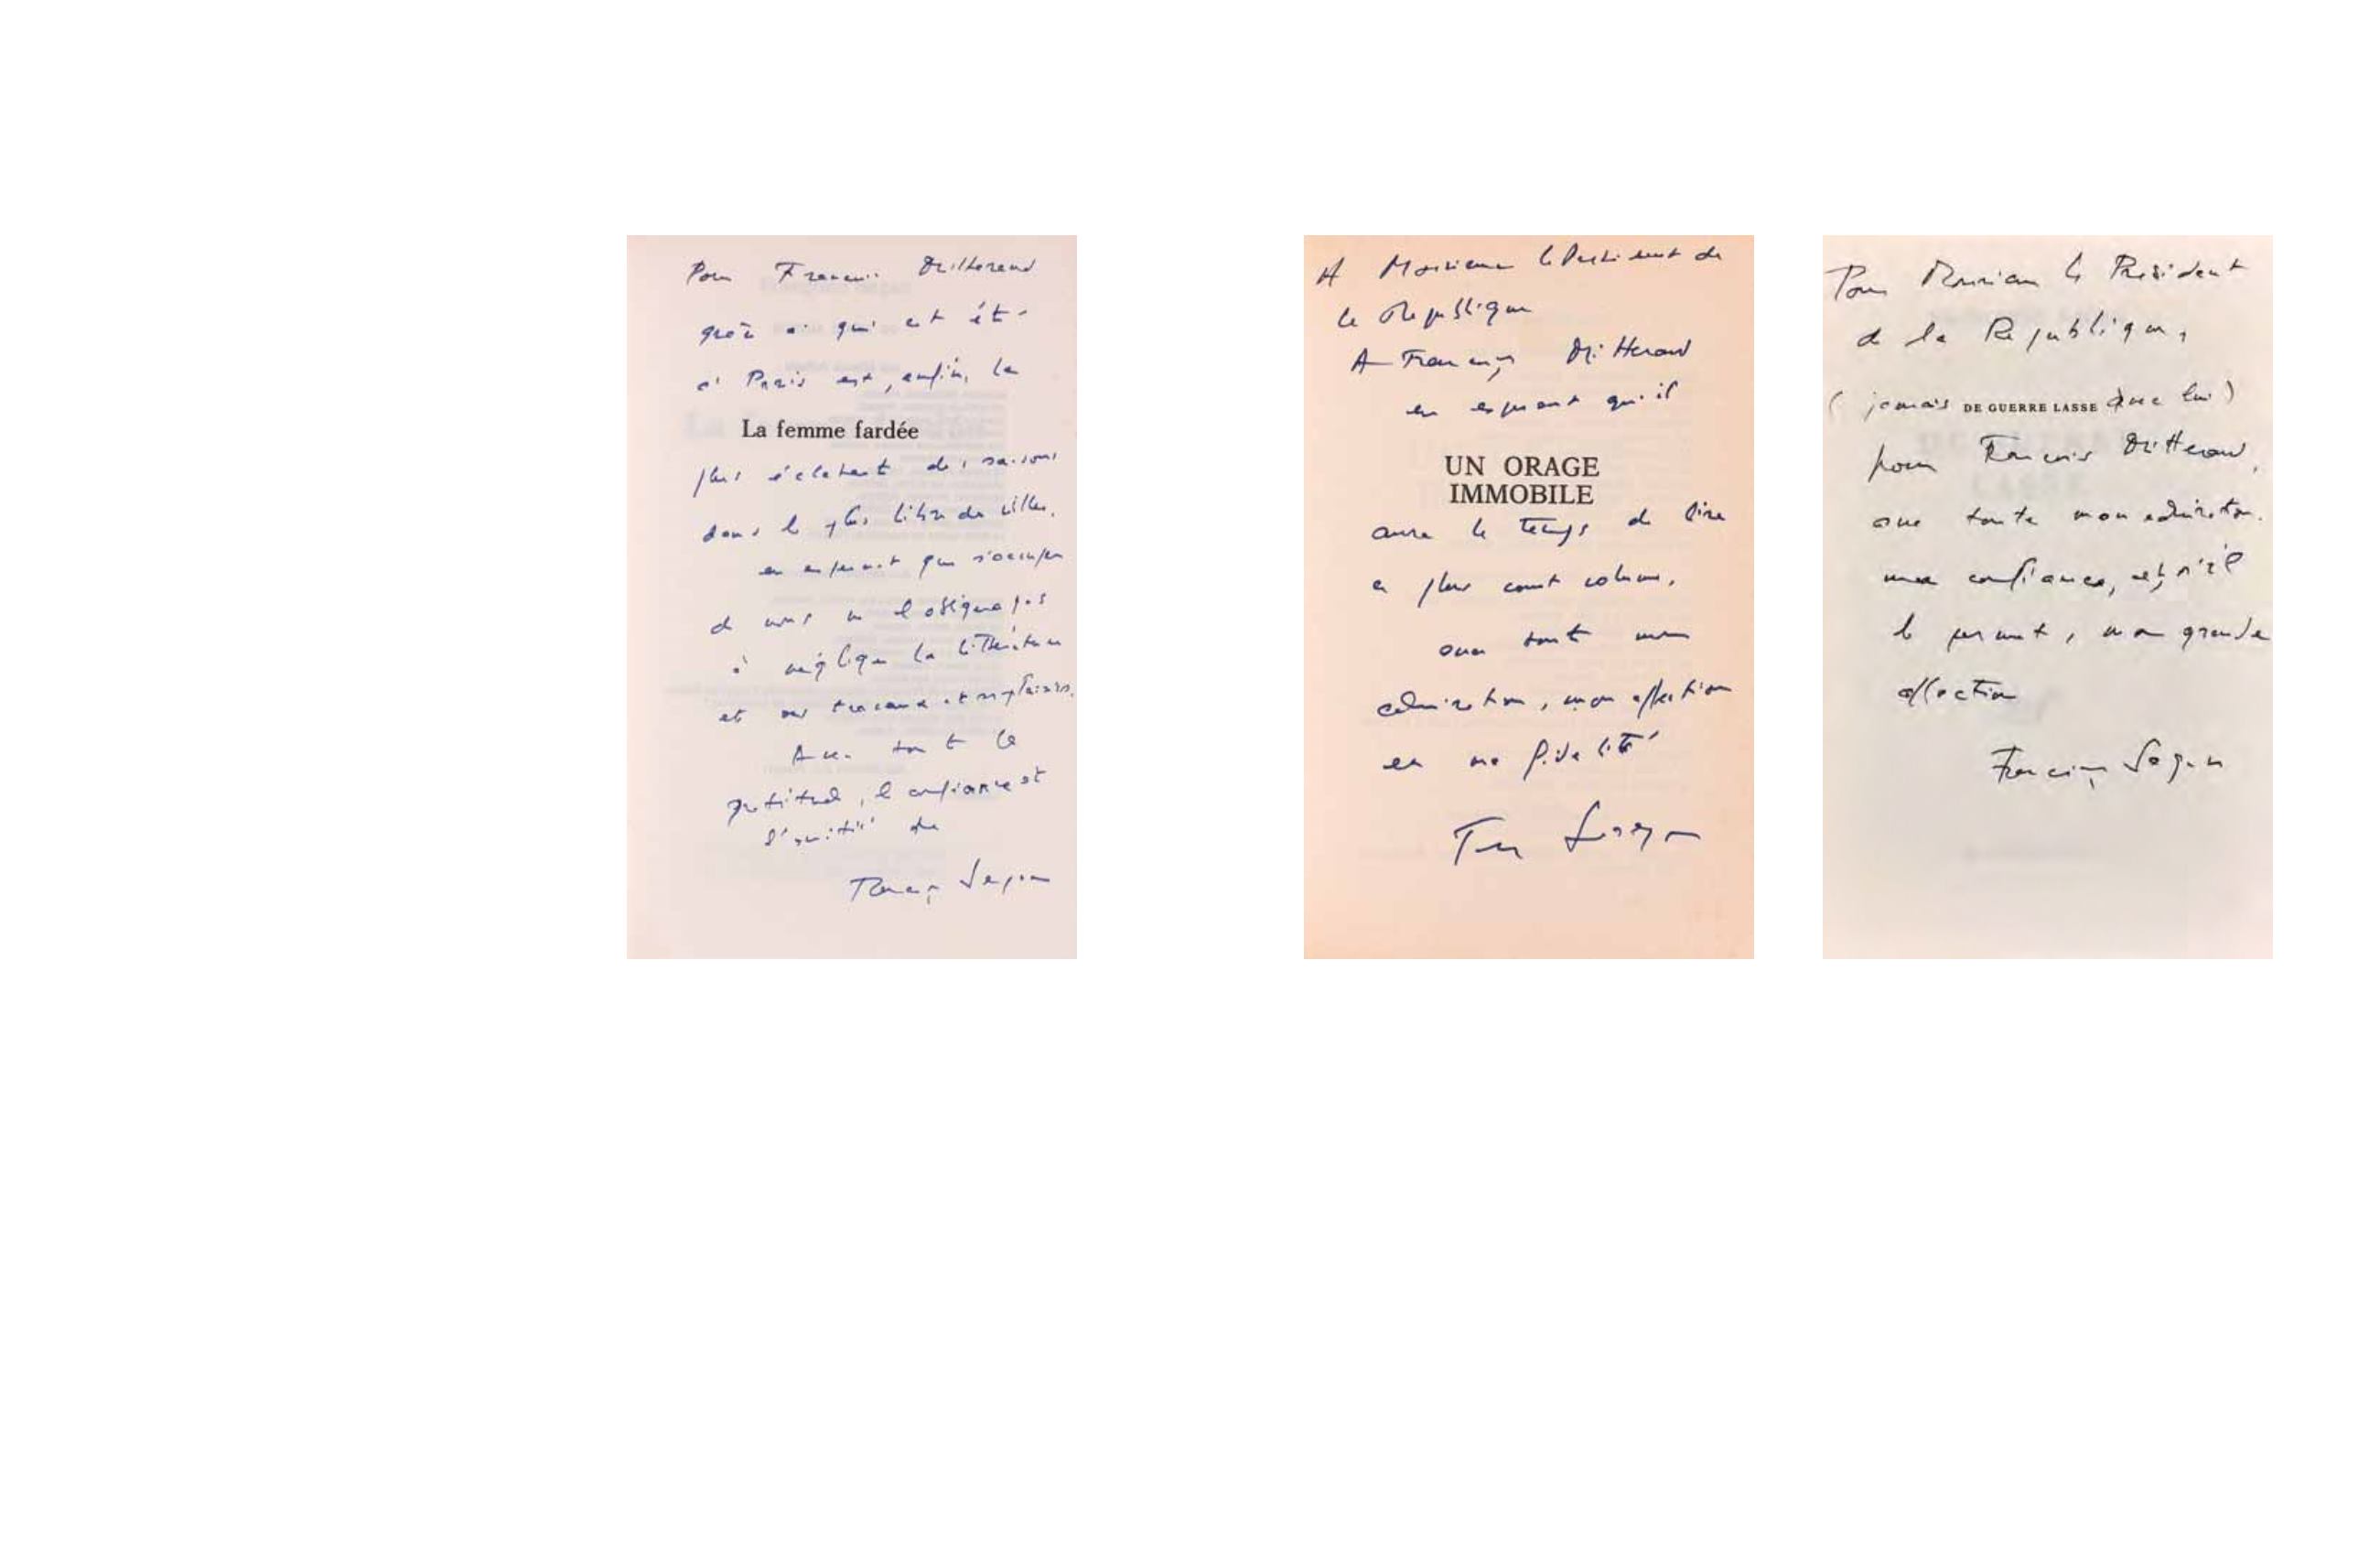 Pour François Mitterand
grâce à qui cet été
à Paris est, enfin, la
La femme fardée
plus éclatant des saisons
dans la plus libre des villes.
en espérant que s'occuper
de nous ne l'obligera pas
à négliger la littérature
et ses travaux et ses plaisirs.
Avec toute la
gratitude, la confiance et
l'amitié de
Françoise Sagan
A Monsieur le Président de
la République
A François Mitterand
en espérant qu'il
UN ORAGE
IMMOBILE
aura le temps de lire
ce plus court volume,
avec toute mon
admiration, mon affection
et ma fidélité
Françoise Sagan
Pour Monsieur le Président
de la République,
(jamais DE GUERRE LASSE avec lui)
pour François Mitterand,
avec toute mon admiration,
ma confiance, et, s'il
le permet, ma grande
affection
Françoise Sagan